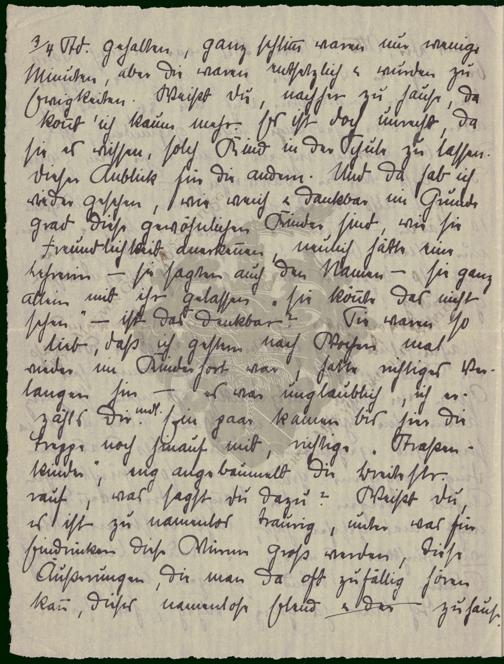 3/4 Std. gehalten, ganz schlim waren nur wenige
Minuten, aber die waren entsetzlich & wurden zu
Ewigkeiten. Weißt Du, nachher zu Hause, da
kont ich kaum mehr. Es ist doch unrecht, da
sie es wissen, solch Kind in der Schule zu lassen.
dieser Anblick für die andern. Und da hab ich
wieder gesehen, wie weich & dankbar im Grunde
grad diese gewöhnlichen Kinder sind, wie sie
Freundlichkeit anerkenen, neulich hätte eine
Lehrerin – sie sagten auch den Namen – sie ganz
allein mit ihr gelassen, "sie könte das nicht
sehen" – ist das denkbar? Sie waren so
lieb, daß ich gestern nach Wochen mal
wieder im Kinderhort war, hatte richtiges Ver-
langen hin – es war unglaublich, ich er-
zähls Dir mdl. Ein paar kamen bis hier die
Treppe noch hinauf mit, richtige "Straßen-
kinder", eng angebaumelt die Breitestr.
rauf, was sagst Du dazu? Weißt Du
es ist zu namenlos traurig, unter was für
Eindrücken diese Würmer groß werden, diese
Äußerungen, die man da oft zufällig hören
kan, dieses namenlose Elend & der zuhaus.